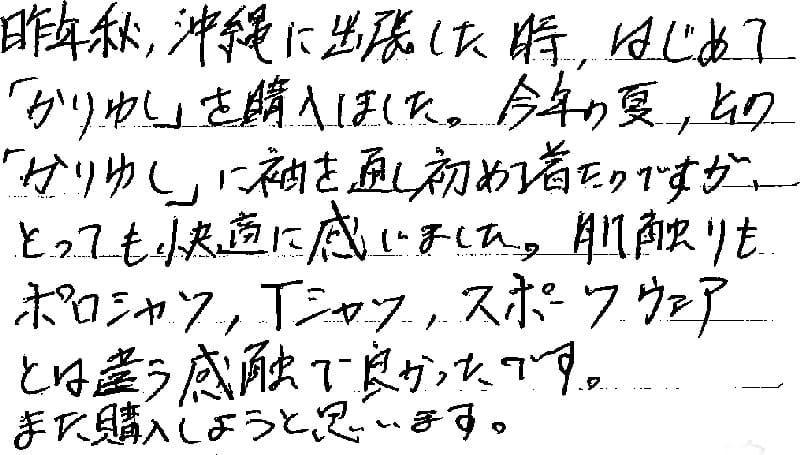 昨年秋，沖縄に出張した時，はじめて
「かりゆし」を購入しました。今年の夏，その
「かりゆし」に袖を通し初めて着たのですが、
とっても快適に感じました。肌触りも
ポロシャツ，Tシャツ，スポーツウェア
とは違う感触で良かったです。
また購入しようと思います。